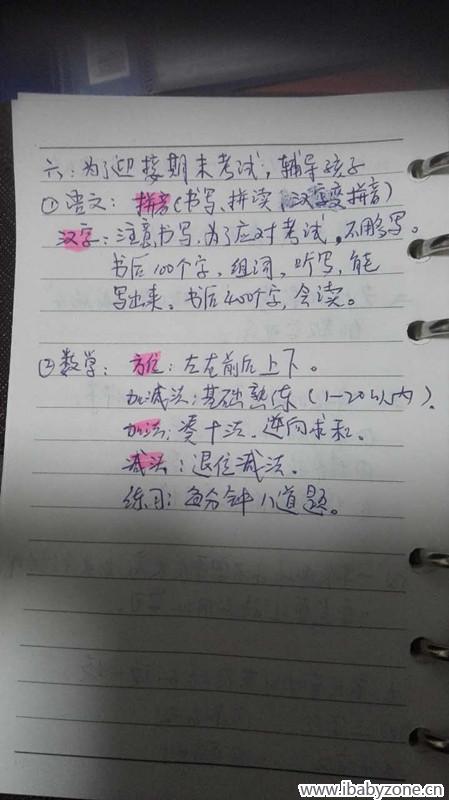 六：为了迎接期末考试，辅导孩子
①语文：拼音（书写、拼读、汉变拼音）
汉字：注意书写，为了应对考试，不用多写。
书后100个字，组词，听写，能
写出来。书后400个字，会读。
②数学：方位：左右前后上下。
加减法：基础熟练（1-20以内）。
加法：凑十法、逆向求和。
减法：退位减法。
练习：每分钟八道题。
www.ibabyzone.cn